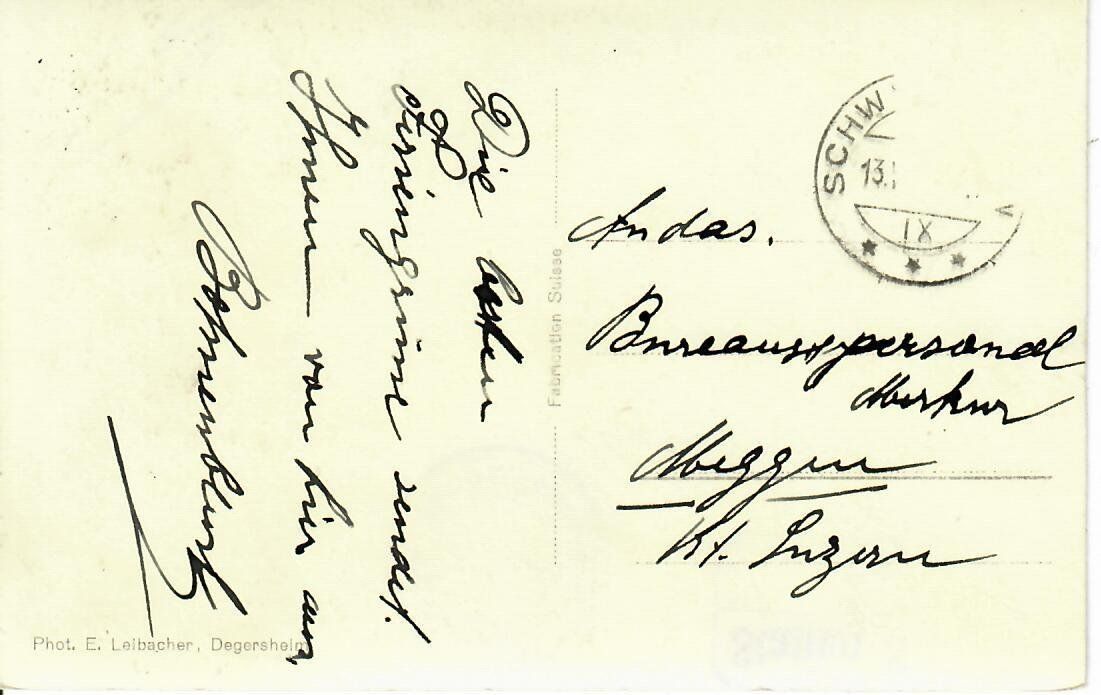 Die besten
Feriengrüsse sendet
Ihnen von hier aus,
Fabrication Suisse
SCHW
13.
IX
An das.
Bureauspersonal
Merkur
Meggen
Kt. Luzern
Phot. E. Leibacher, Degersheim